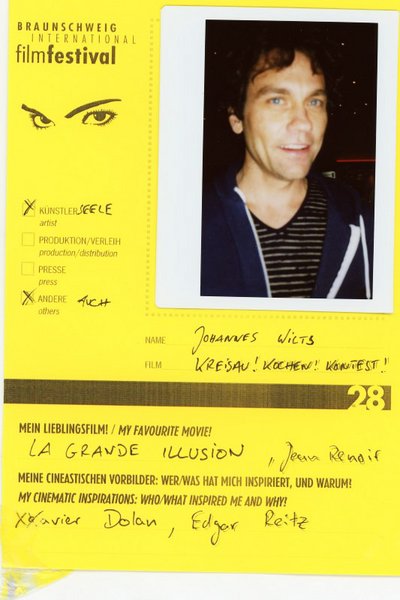 BRAUNSCHWEIG
INTERNATIONAL
filmfestival
X KÜNSTLERSEELE
artist
PRODUKTION/VERLEIH
production/distribution
PRESSE
press
X ANDERE AUCH
others
NAME JOHANNES WILTS
FILM KREISAU! KOCHEN! KONTEST!
28
MEIN LIEBLINGSFILM! / MY FAVOURITE MOVIE!
LA GRANDE ILLUSION, Jean Renoir
MEINE CINEASTISCHEN VORBILDER: WER/WAS HAT MICH INSPIRIERT, UND WARUM!
MY CINEMATIC INSPIRATIONS: WHO/WHAT INSPIRED ME AND WHY!
Xavier Dolan, Edgar Reitz